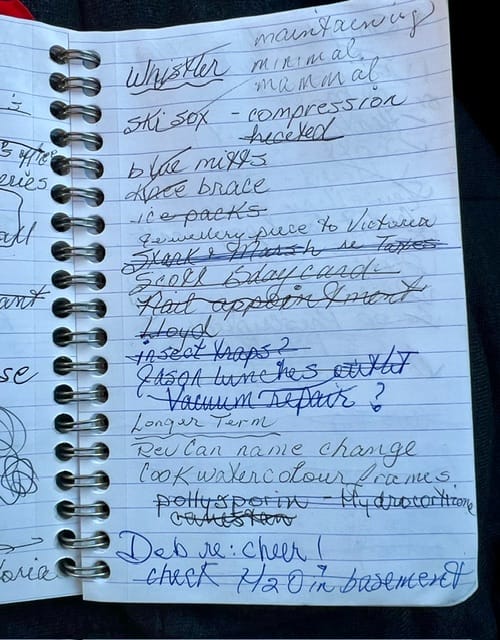 maintaining
minimal
mammal
Whistler
Ski sox - compression
heated
blue mitts
knee brace
ice packs
jewellery piece to Victoria
& Marsh re Taxes
Scott Bday card
Hair appointment
Lloyd
insect traps?
Jason lunches
Vacuum repair ?
Longer Term
Rev Can name change
Cook watercolour frames
pollysporin - Hydrocortizone
canesten
Deb re: cheer!
check H2O in basement